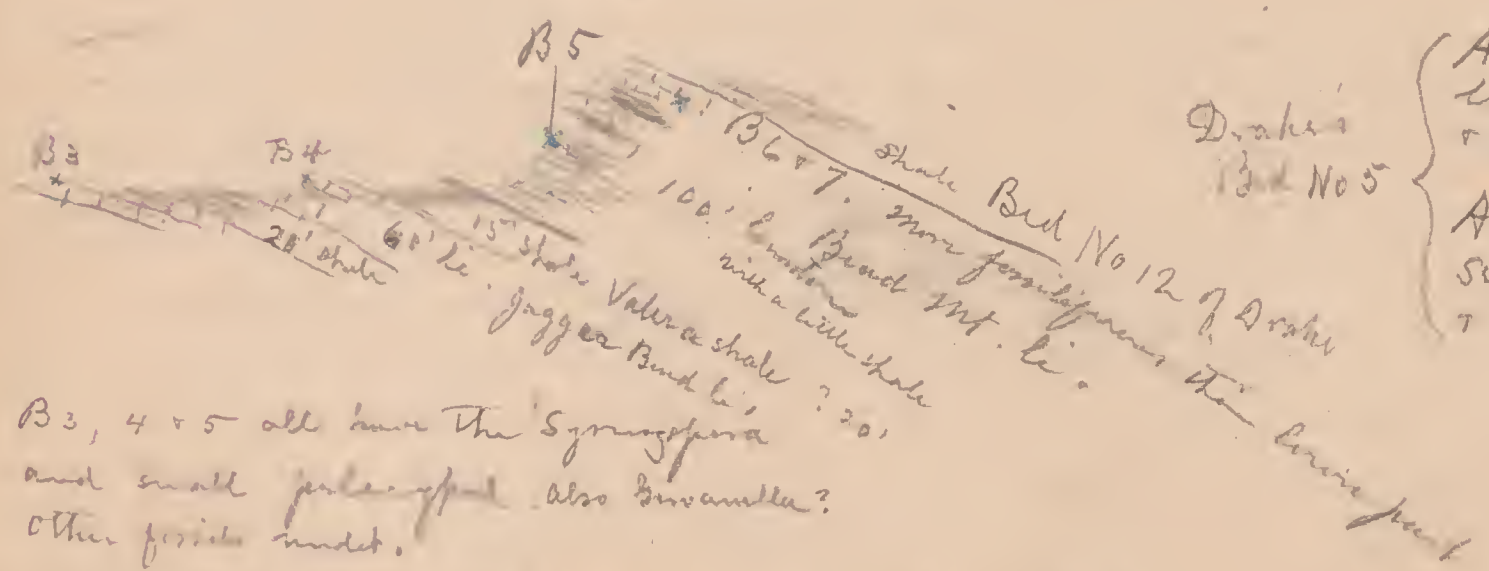 B5
B3
B4
20' shale
60' li.
15' shale
Valera shale ? 20'
Jagger Bend li.
100' limestone
with a little shale
Bead Mt. li.
B6 & 7. more fossiliferous than lower part
shale Bed No 12 of Drake
Drake's
Bed No 5
B3, 4 & 5 all have the Syringopora
and small pelecypod also Girvanella?
Other fossils undet.